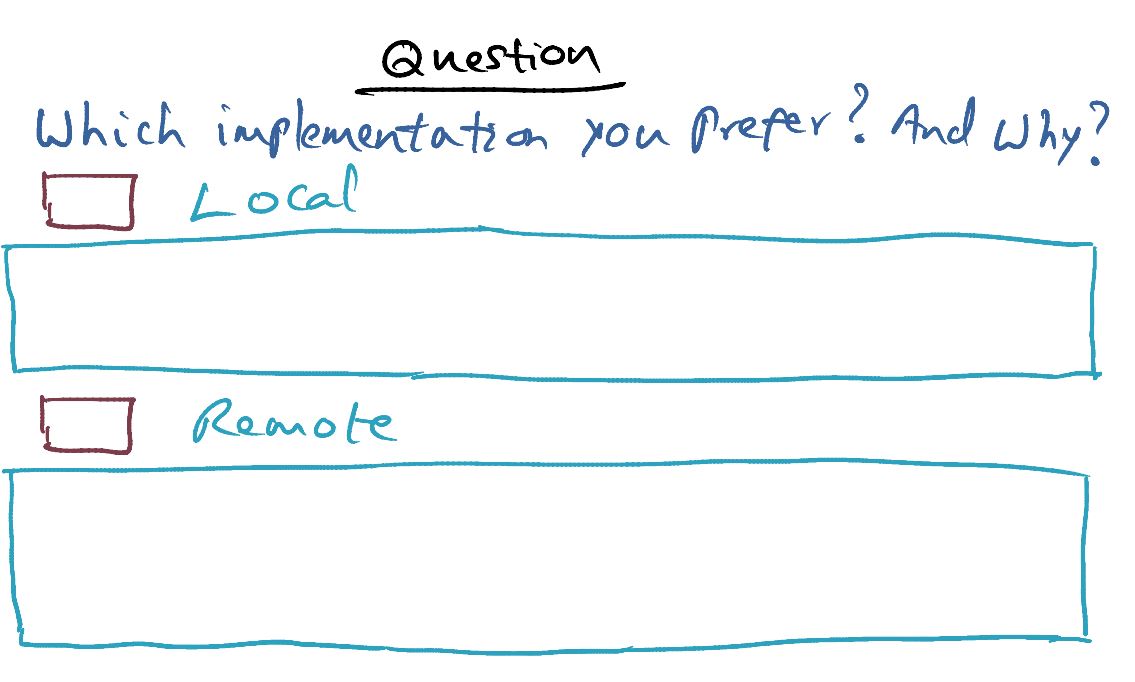 Question
Which implementation you prefer? And why?
Local
Remote